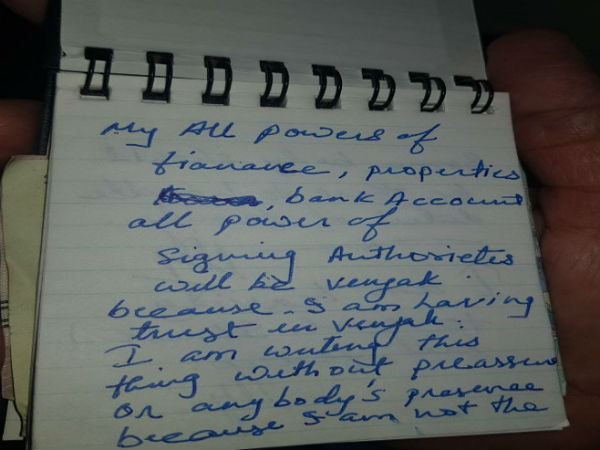 My All powers of
fianance, properties
, bank Account
all power of
Signing Authorieties
will be venjak
because I am having
trust in venjak.
I am writing this
thing without preassure
or any body's presence
because I am not the